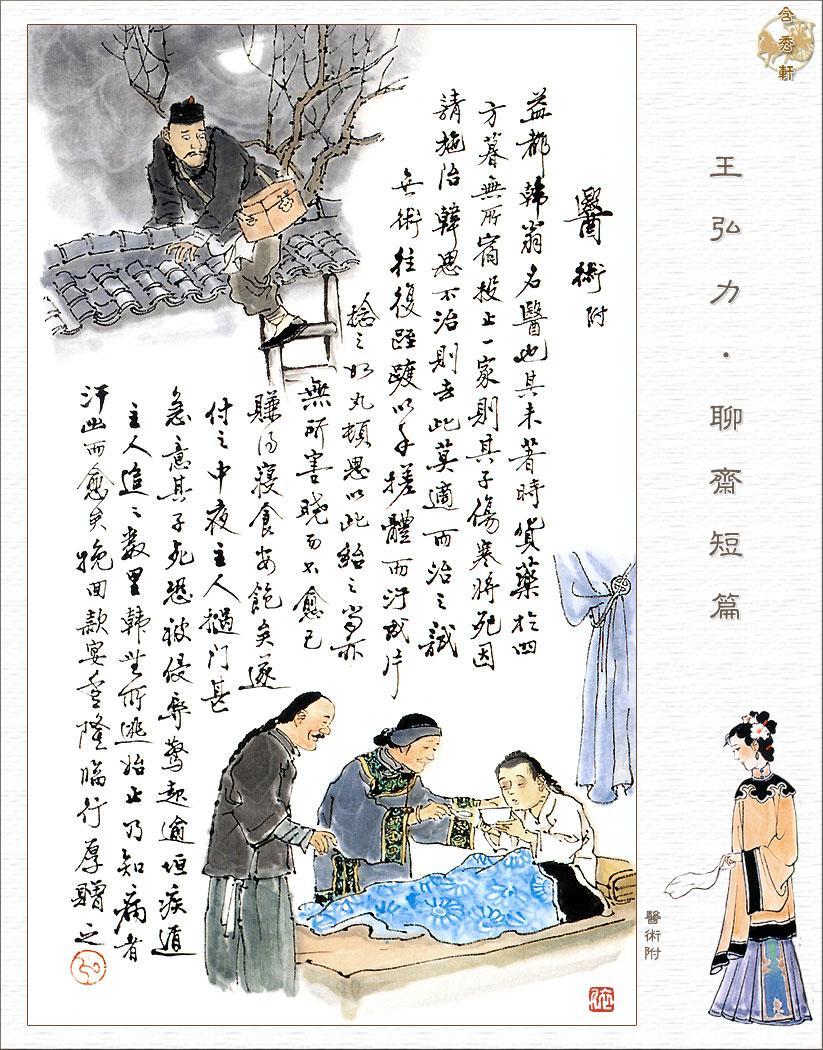 含秀軒
王弘力·聊齋短篇
醫術附
益都韓翁名醫也其未著時貨藥於四
方暮無所宿投止一家則其子傷寒將死因
請施治韓思不治則去此莫適而治之誠
無術往復跮踱以手搓體而汙成片
捻之如丸頓思以此紿之當亦
無所害曉而不愈已
賺得寢食安飽矣遂
付之中夜主人撾門甚
急意其子死恐被侵辱驚起逾垣疾遁
主人追之數里韓無所逃始止乃知病者
汗出而愈矣挽回款宴豐隆臨行厚贈之
醫術附